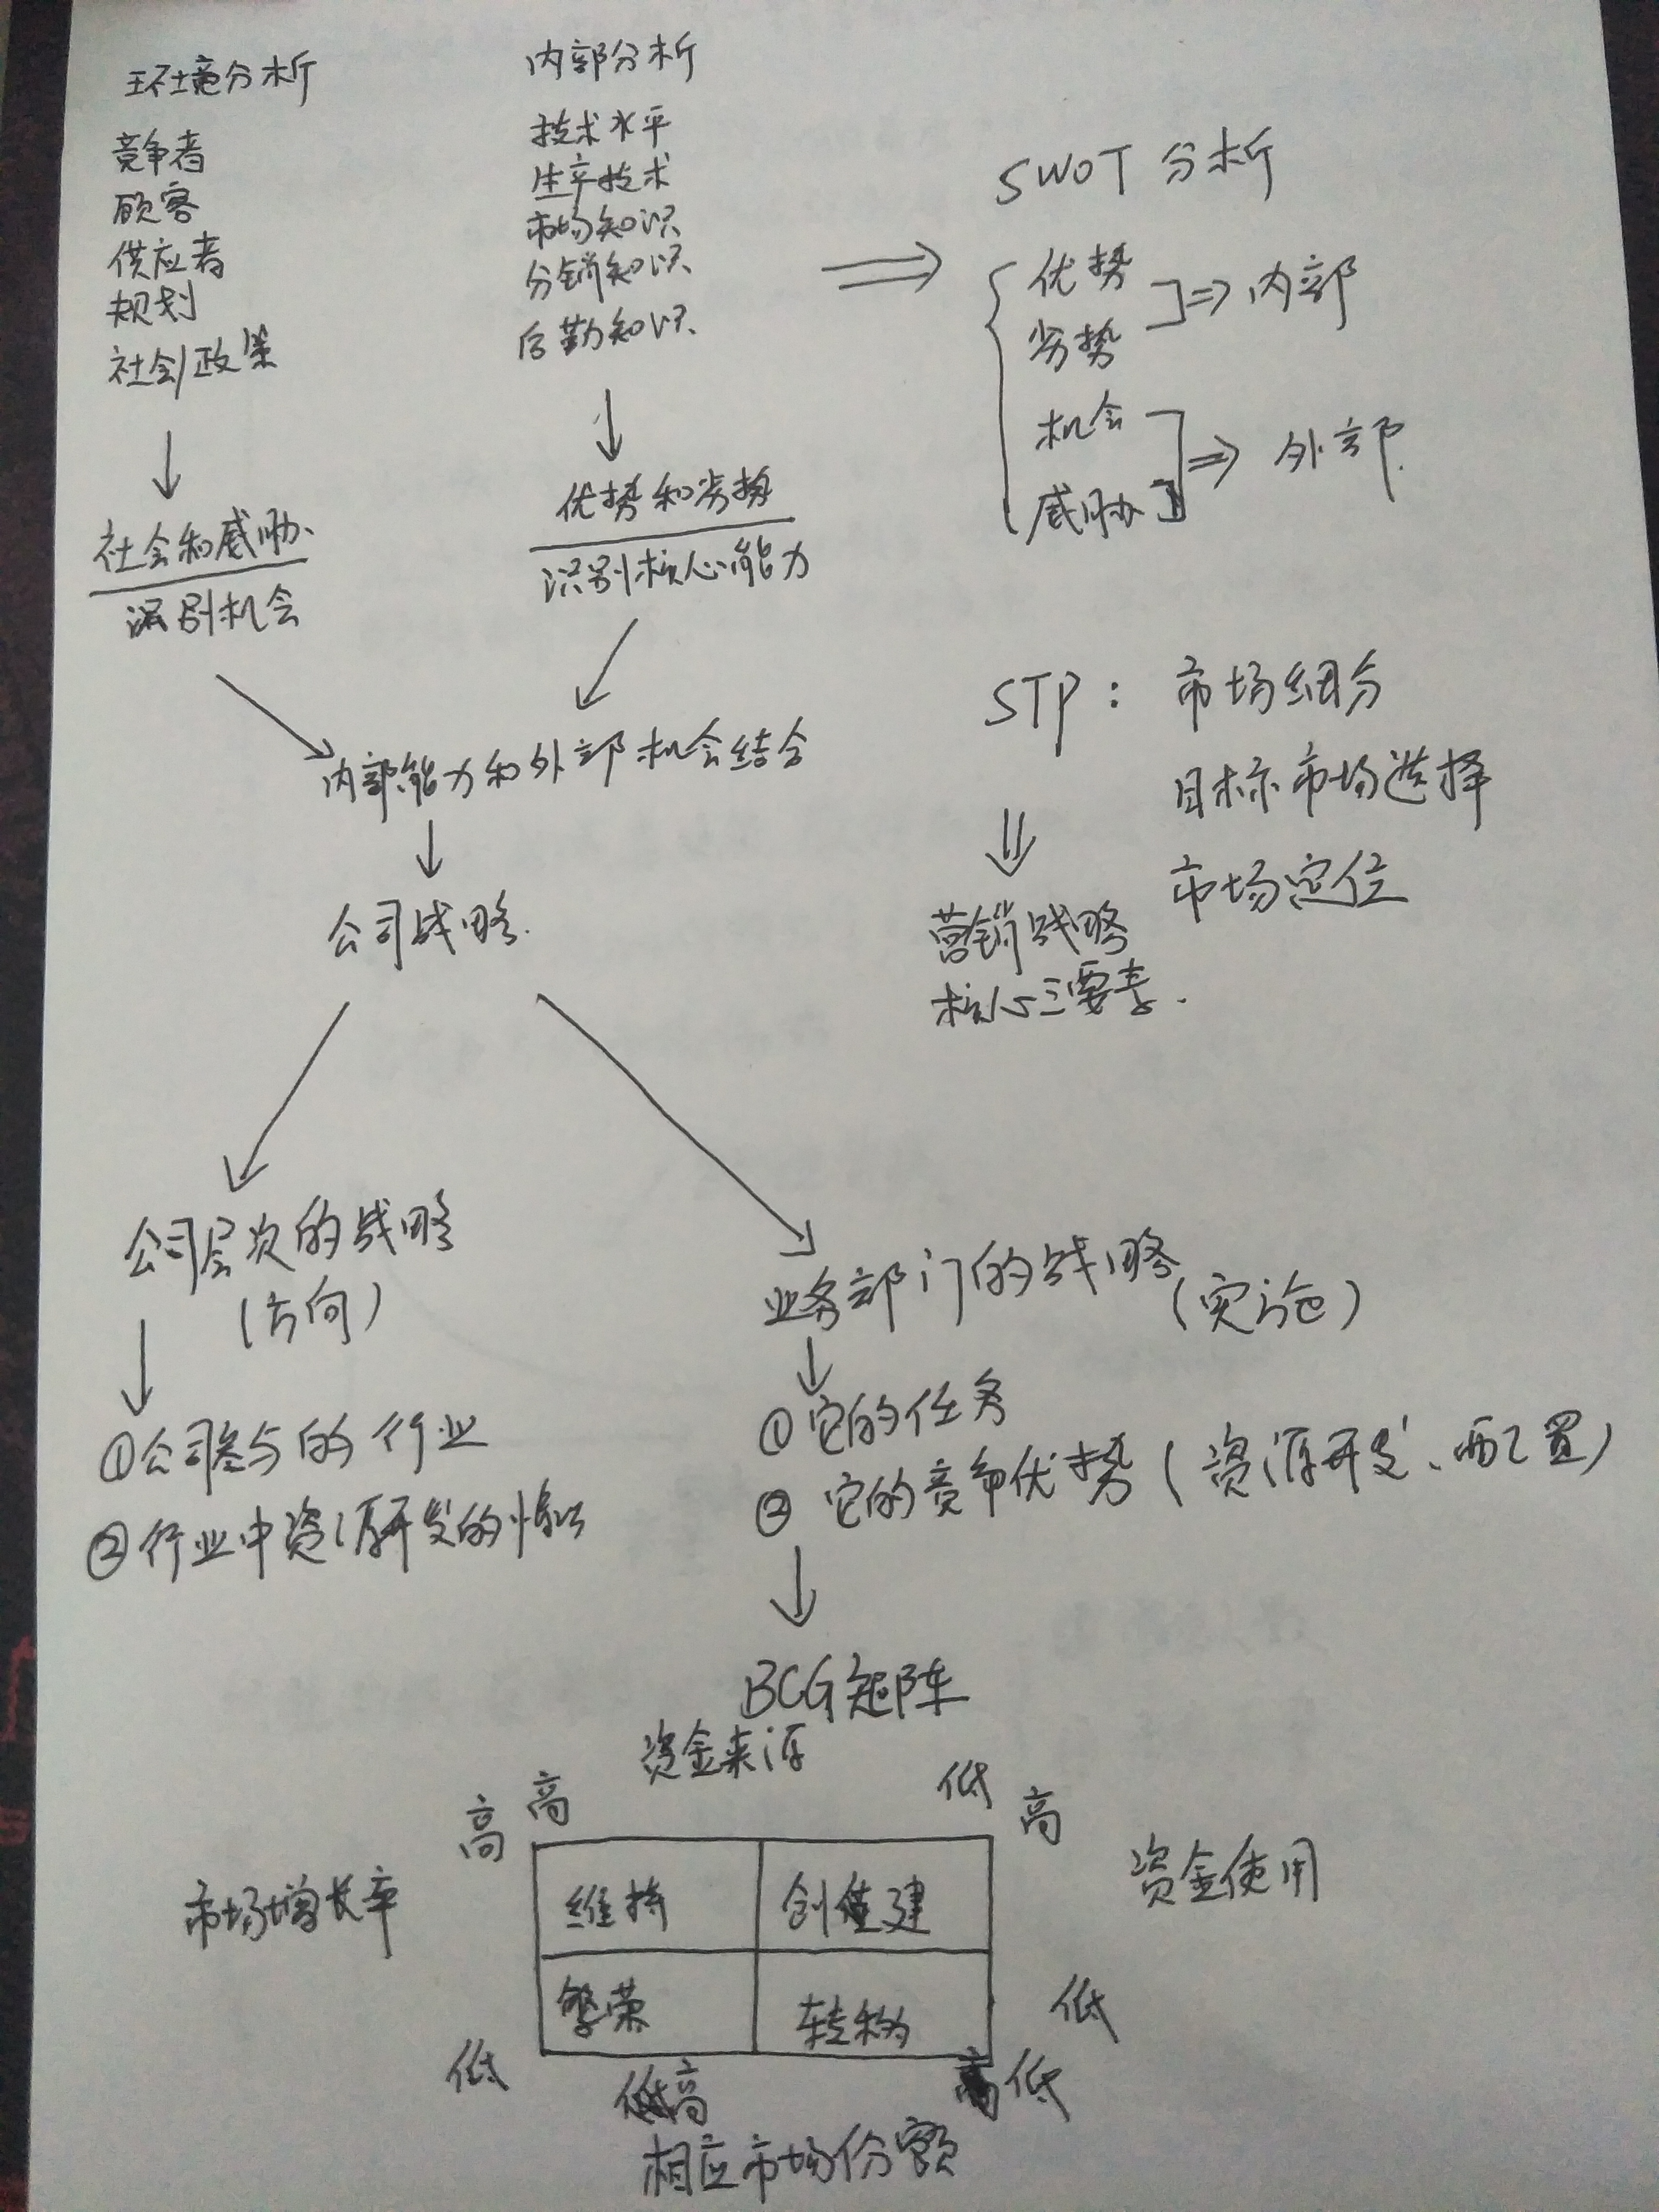 环境分析
竞争者
顾客
供应者
规划
社会/政策
社会和威胁
识别机会
内部分析
技术水平
生产技术
市场知识
分销知识
后勤知识
优势和劣势
识别核心能力
内部能力和外部机会结合
公司战略
SWOT 分析
优势
劣势
内部
机会
威胁
外部
STP: 市场细分
目标市场选择
市场定位
营销战略
核心三要素
公司层次的战略
(方向)
①公司参与的行业
②行业中资源开发的
业务部门的战略
(实施)
①它的任务
②它的竞争优势(资源开发、配置)
BCG矩阵
资金来源
高 高 低 高
市场增长率
维持 创建
资金使用
繁荣
低
低 高 低
相应市场份额